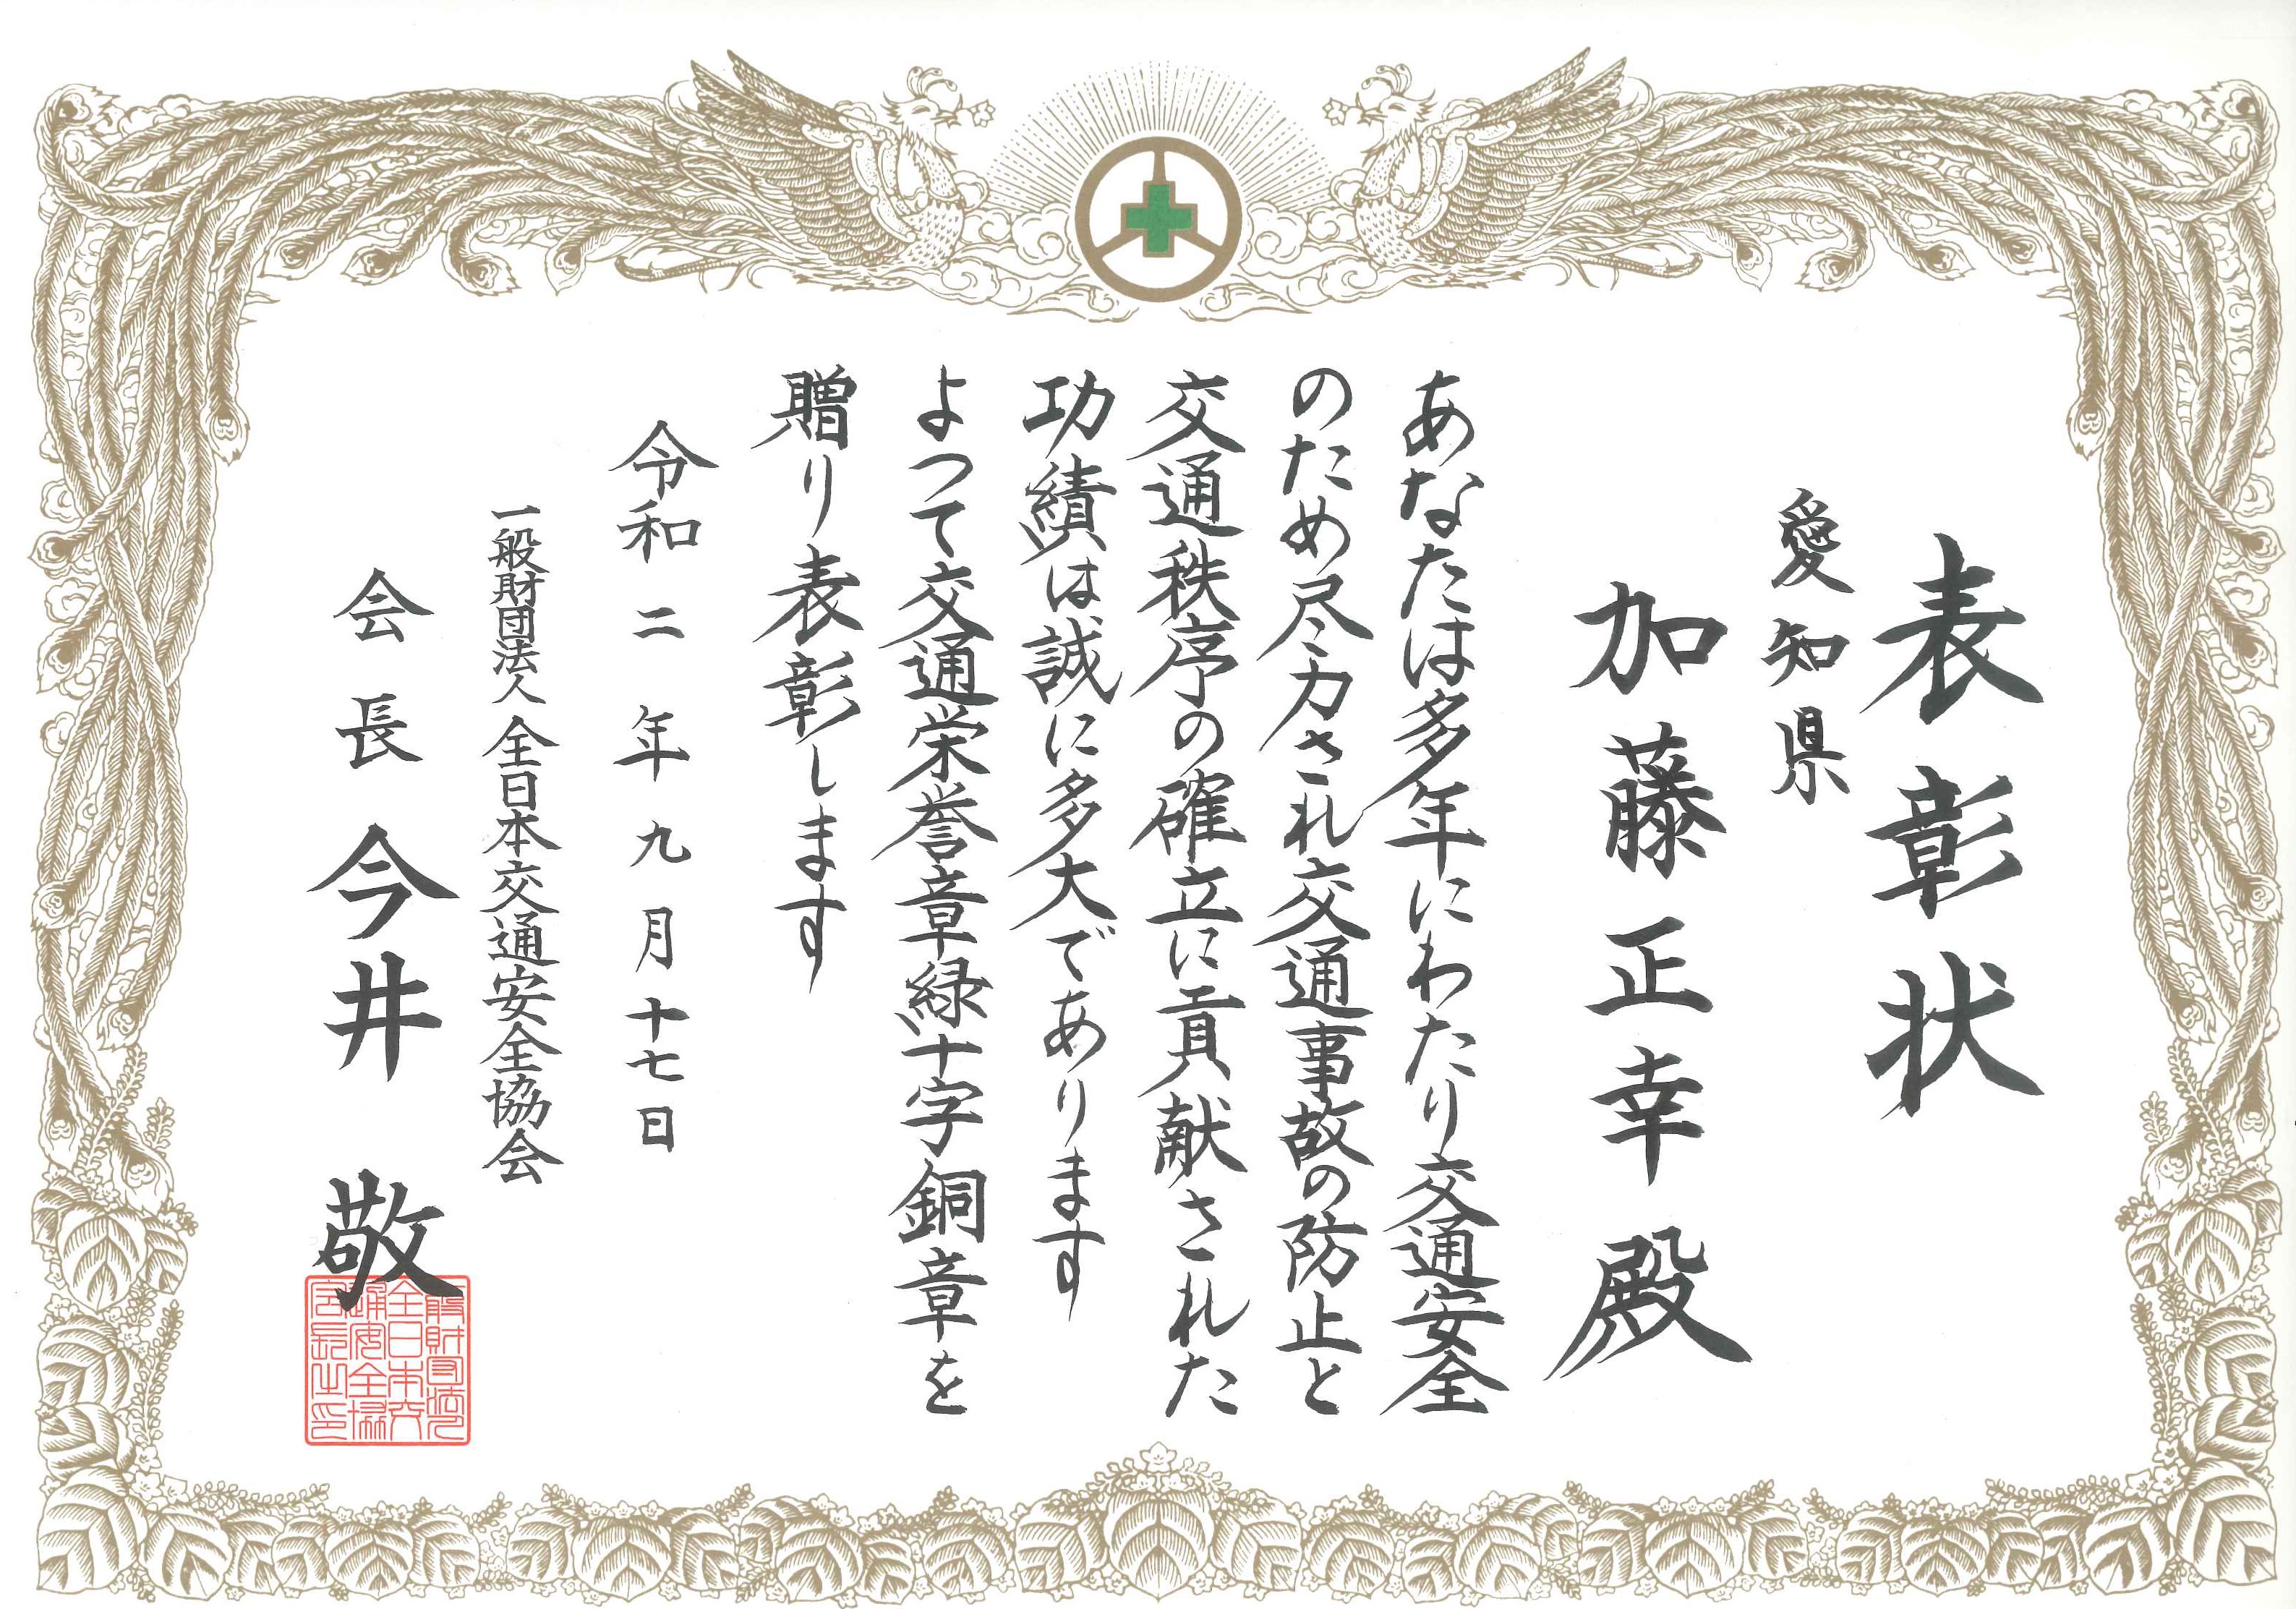 表彰状
愛知県
加藤正幸殿
あなたは多年にわたり交通安全
のため尽力され交通事故の防止と
交通秩序の確立に貢献された
功績は誠に多大であります
よつて交通栄誉章緑十字銅章を
贈り表彰します
令和二年九月十七日
一般財団法人全日本交通安全協会
会長今井敬
一般財団法人
全日本交
通安全協
会長之印